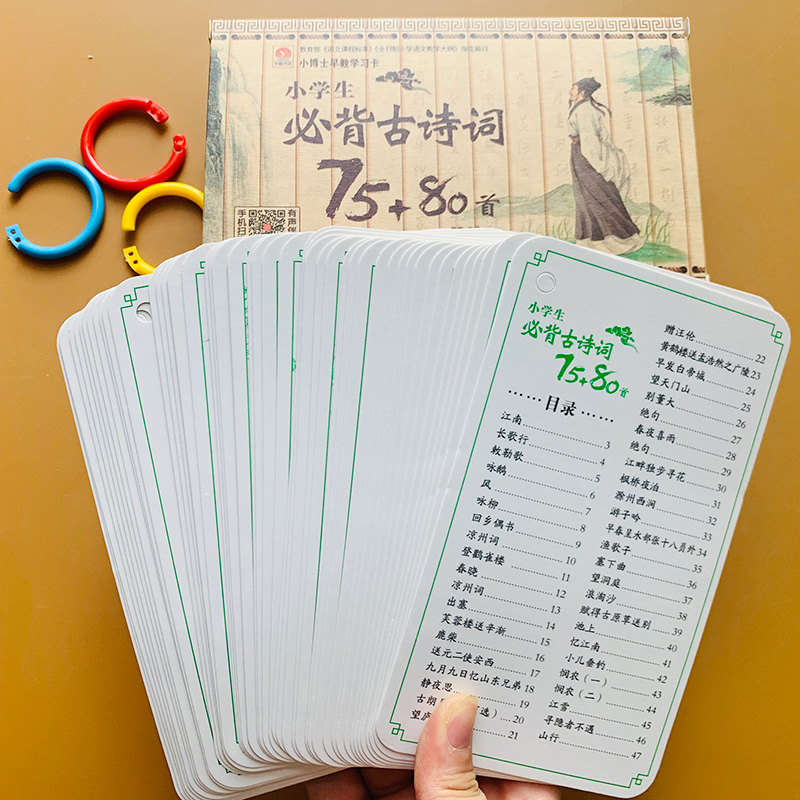 教育部《语文课程标准》《全日制小学语文教学大纲》指定篇目
小博士早教学习卡
小学生
必背古诗词
75+80首
手机扫
有声伴
小学生
必背古诗词
75+80首
······目录······
江南 3
长歌行 4
敕勒歌 5
咏鹅 6
风 7
咏柳 8
回乡偶书 9
凉州词 10
登鹳雀楼 11
春晓 12
凉州词 13
出塞 14
芙蓉楼送辛渐 15
鹿柴 16
送元二使安西 17
九月九日忆山东兄弟 18
静夜思 19
古朗 选） 20
望庐 21
赠汪伦 22
黄鹤楼送孟浩然之广陵 23
早发白帝城 24
望天门山 25
别董大 26
绝句 27
春夜喜雨 28
绝句 29
江畔独步寻花 30
枫桥夜泊 31
滁州西涧 32
游子吟 33
早春呈水部张十八员外 34
渔歌子 35
塞下曲 36
望洞庭 37
浪淘沙 38
赋得古原草送别 39
池上 40
忆江南 41
小儿垂钓 42
悯农（一） 43
悯农（二） 44
江雪 45
寻隐者不遇 46
山行 47